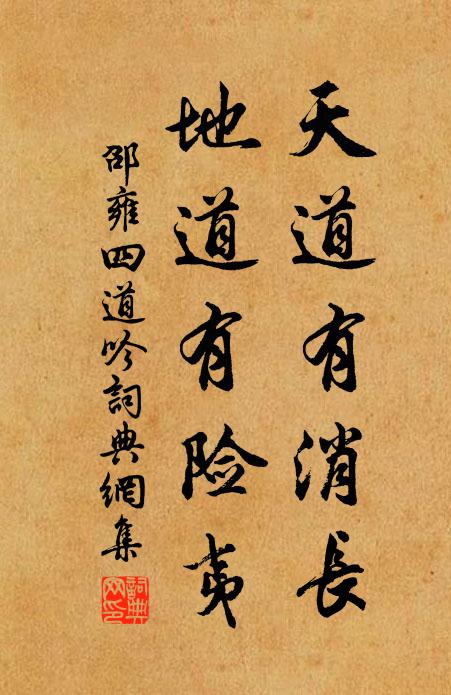 天道有消長
地道有险夷
邵雍四道吟詞典網集
詞典网印